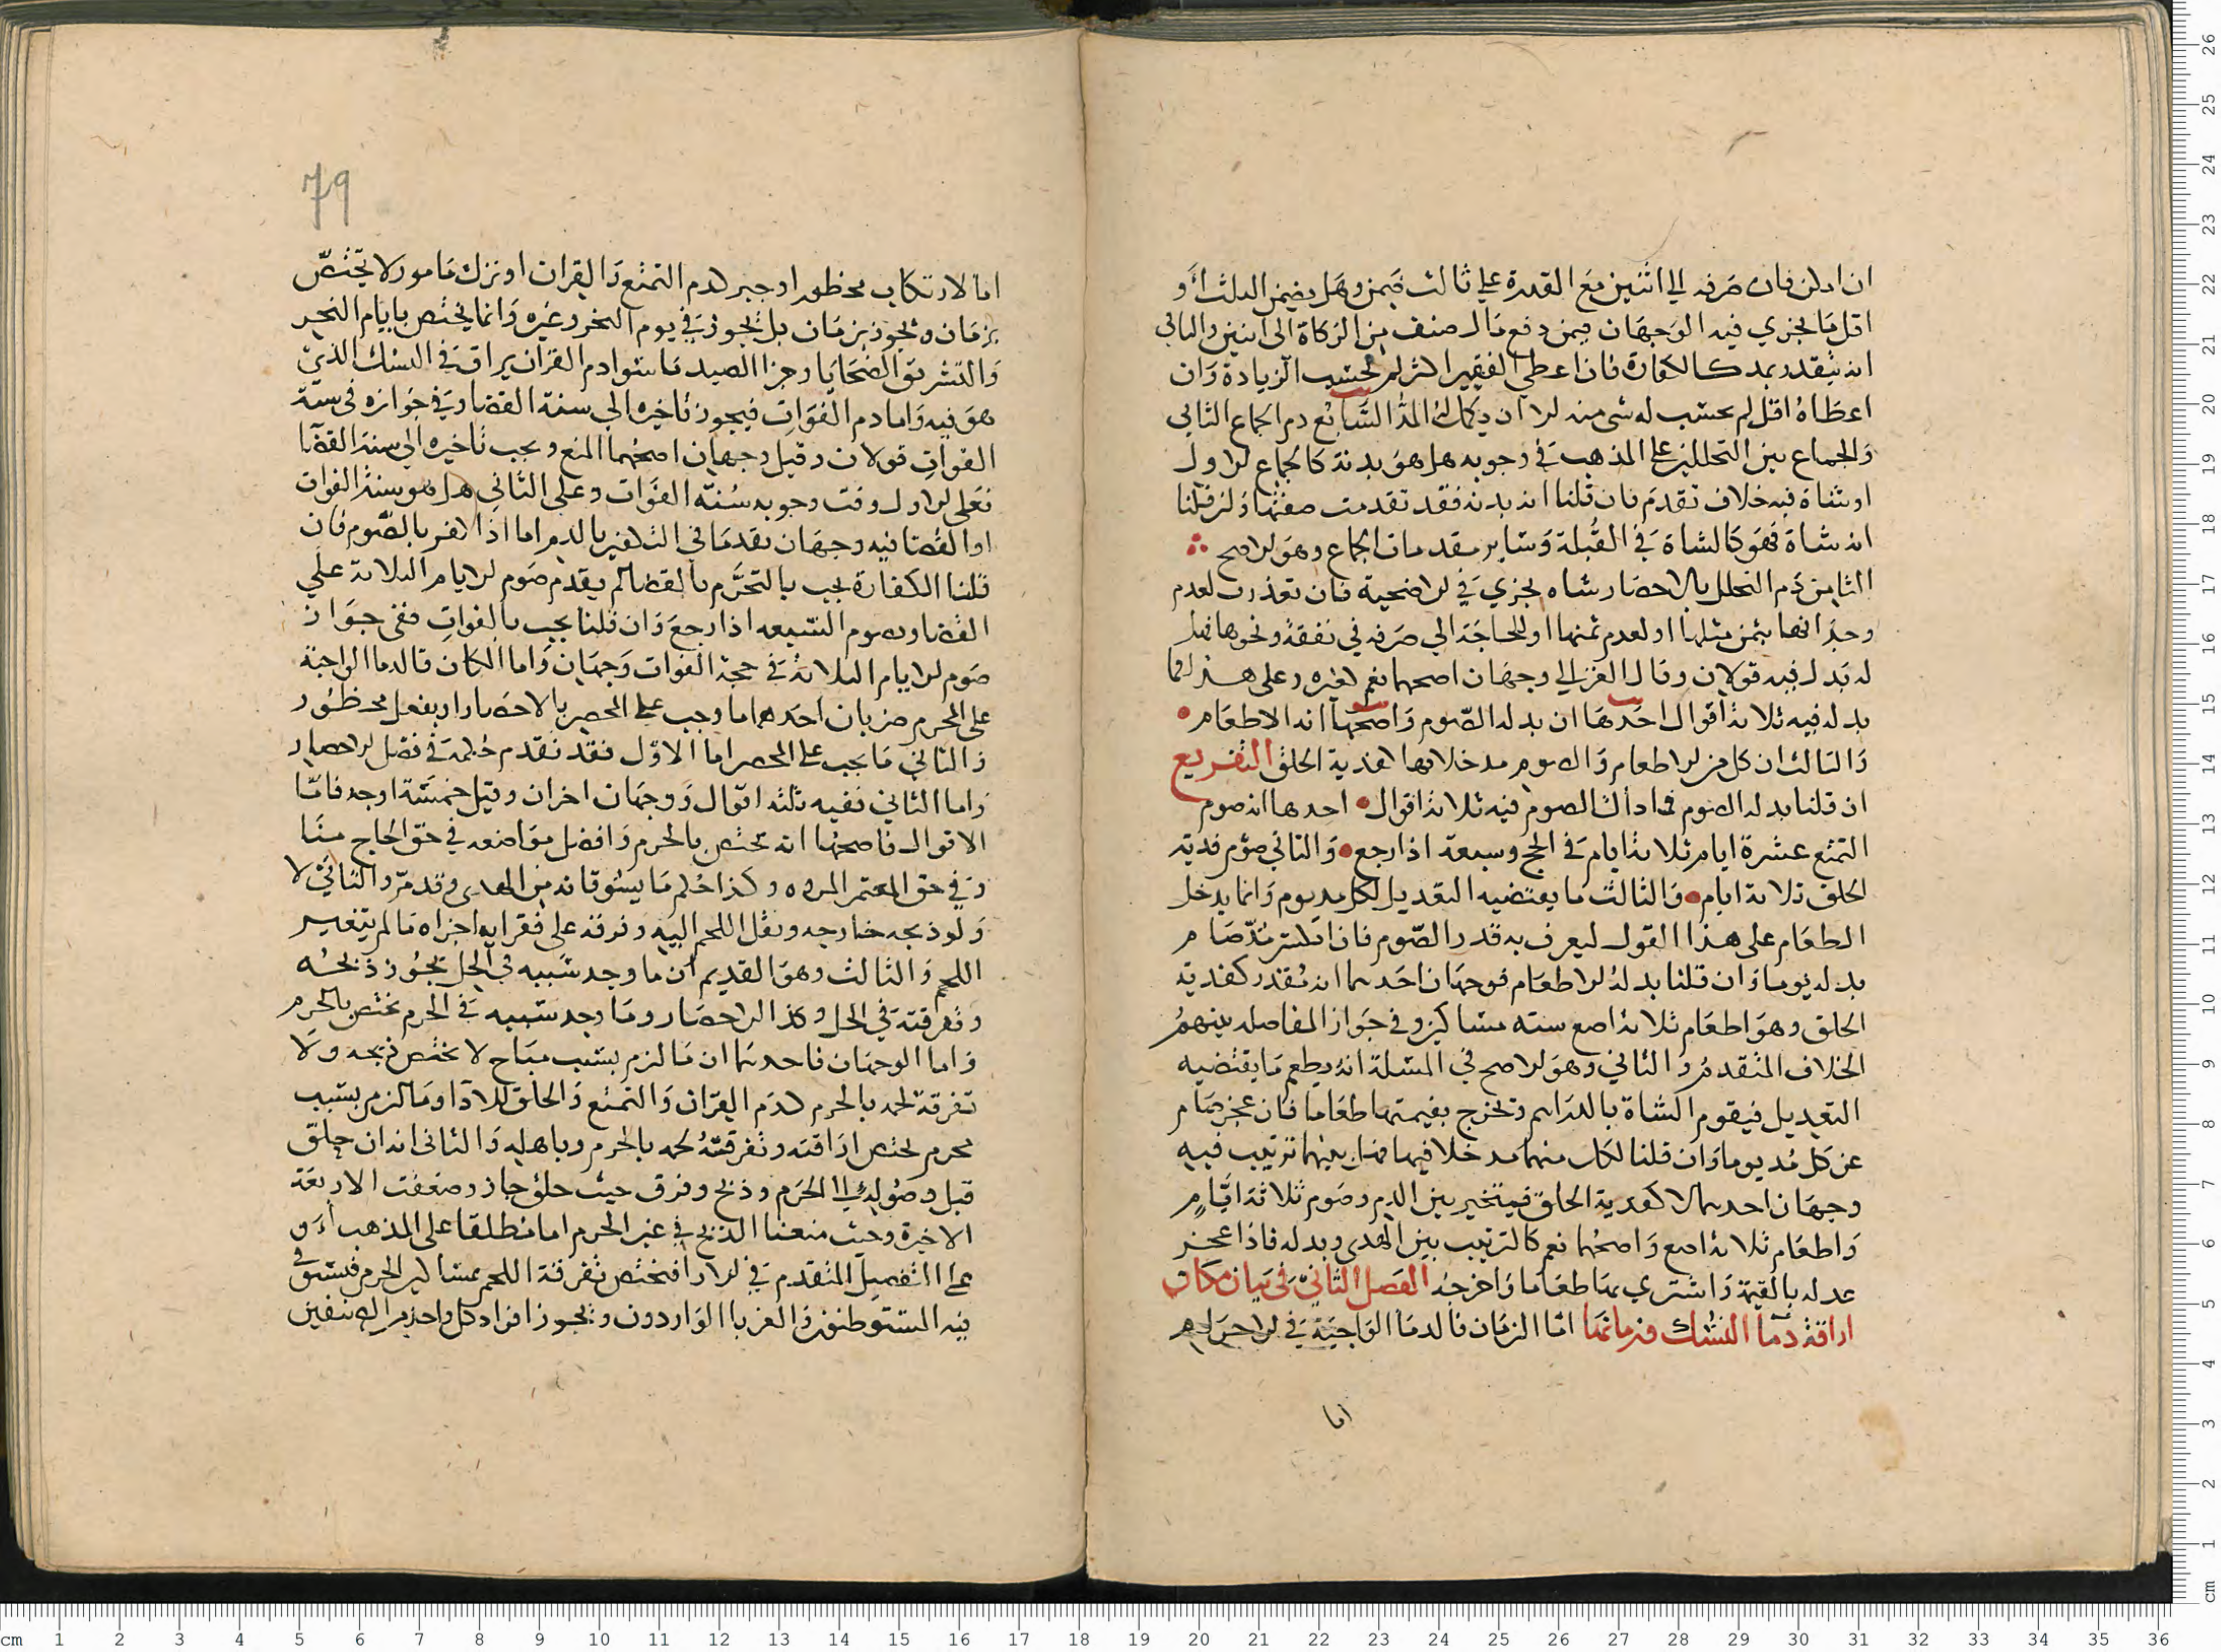 ان ادلن فان صرفه الي اثنين مع القدرة علي ثالث ضمن وهل يضمن الثلث أو
اقل ما يجزي فيه الوجهان فيمن دفع مال صنف من الزكاة الى اثنين والثاني
انه يتقدر بمد كالكفارة فان اعطي الفقير اكثر لم تحسب الزيادة وان
اعطاه اقل لم يحسب له شي منه الا ان يكمل له المد السابع دم الجماع الثاني
والجماع بين التحللين على المذهب في وجوبه هل هو بدنة كالجماع الاول
او شاة فيه خلاف تقدم فان قلنا انه بدنه فقد تقدمت صفتها وان قلنا
انه شاة فهو كالشاة في القبلة وسائر مقدمات الجماع وهو الاصح
الثامن دم التحلل بالاحصار شاه تجزي في الاضحية فان تعذرت لعدم
وجدانها بثمن مثلها او لعدم ثمنها او للحاجة الي صرفه في نفقة ونحوها فهل
له بدل فيه قولان وقال الغزالي وجهان اصحهما نعم كغيره وعلى هذا فما
بدله فيه ثلاثة اقوال احدها ان بدله الصوم واصحها انه الاطعام
والثالث ان كل من الاطعام والصوم مدخلا فيها كفدية الحلق التفريع
ان قلنا بدله الصوم فما ذاك الصوم فيه ثلاثة اقوال احدها انه صوم
التمتع عشرة ايام ثلاثة ايام في الحج وسبعة اذا رجع والثاني صوم فدية
الحلق ثلاثة ايام والثالث ما يقتضيه التعديل لكل مد يوم وانما يدخل
الطعام على هذا القول ليعرف به قدر الصوم فان انكسر مد صام
بدله يوما وان قلنا بدله الاطعام فوجهان احدهما انه مقدر كفدية
الحلق وهو اطعام ثلاثة اصع ستة مساكين وفي جواز المفاضله بينهم
الخلاف المتقدم والثاني وهو الاصح في المسلة انه يطعم ما يقتضيه
التعديل فيقوم الشاة بالدراهم وتخرج بقيمتها طعاما فان عجز صام
عن كل مد يوما وان قلنا لكل منهما مدخلا فيها فهل بينهما ترتيب فيه
وجهان احدهما لا كفدية الحلق فيتخير بين الدم وصوم ثلاثة ايام
واطعام ثلاثة اصع واصحهما نعم كالترتيب بين الهدي وبدله فاذا عجز
عدل بالقيمة واشتري بها طعاما واخرجه الفصل الثاني في بيان مكان
اراقة دما النسك وزمانها اما الزمان فالدما الواجبة في الاحرام
اما
79
اما لارتكاب محظور او جبر كدم التمتع والقران او ترك مامور لا يختص
بزمان وتجوز بزمان بل تجوز في يوم النحر وغيره وانما يختص بايام النحر
والتشريق الضحايا وجزا الصيد ما سوا دم القران يراق في النسك الذي
هو فيه واما دم الفوات فيجوز تاخيره الي سنة القضا وفي جوازه في سنة
الفوات قولان وقيل وجهان اصحهما المنع ويجب تاخيره الى سنة القضا
فعلى الاول وقت وجوبه سنة الفوات وعلى الثاني هل هو سنة الفوات
او القضا فيه وجهان تقدما في التكفير بالدم اما اذا كفر بالصوم فان
قلنا الكفارة تجب بالتحرم بالقضا لم يقدم صوم الايام الثلاثة علي
القضا ويصوم السبعه اذا رجع وان قلنا يجب بالفوات ففي جواز
صوم الايام الثلاثة في حجة الفوات وجهان واما المكان فالدما الواجبة
على المحرم ضربان احدهما ما وجب على المحصر بالاحصار او بفعل محظور
والثاني ما يجب على المحصر اما الاول فقد تقدم حكمه في فصل الاحصار
واما الثاني ففيه ثلثة اقوال ووجهان اخران وقيل خمسة اوجه فاما
الاقوال فاصحها انه تختص بالحرم وافضل مواضعه في حق الحاج منا
وفي حق المعتمر المروه وكذا حكم ما يسوقانه من الهدي وقد مر والثاني لا
ولو ذبحه خارجه ونقل اللحم اليه وفرقه على فقرايه اجزاه ما لم يتغير
اللحم والثالث وهو القديم ان ما وجد سببه في الحل يجوز ذبحه
وتفرقته في الحل وكذا الاحصار وما وجد سببه في الحرم تختص بالحرم
واما الوجهان فاحدهما ان ما لزم بسبب مباح لا تختص ذبحه ولا
تفرقة لحمه بالحرم كدم القران والتمتع والحلق للاذا وما لزم بسبب
محرم تختص اراقته وتفرقته لحمه بالحرم وباهله والثاني انه ان حلق
قبل وصوله الي الحرم وذبح وفرق حيث حلق جاز وضعفت الاربعة
الاخيرة وحيث منعنا الذبح في غير الحرم اما مطلقا على المذهب أو
على التفصيل المتقدم في الاراقختص تفرقة اللحم بمساكين الحرم فيستوي
فيه المستوطنون والغربا الواردون وتجوز افراد كل واحد من الصنفين